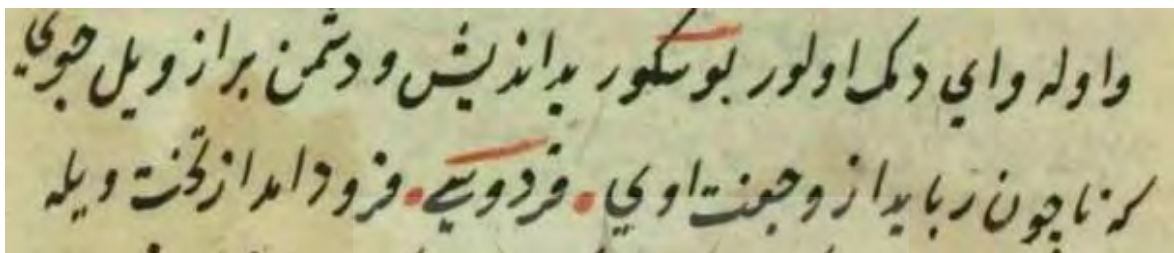 واوله وای دمک اولور بوشکور بداندیش و دشمن براز ویل جوی
که تا چون رباید از و جفت اوی . فردوسی . فرود امد از تخت ویله